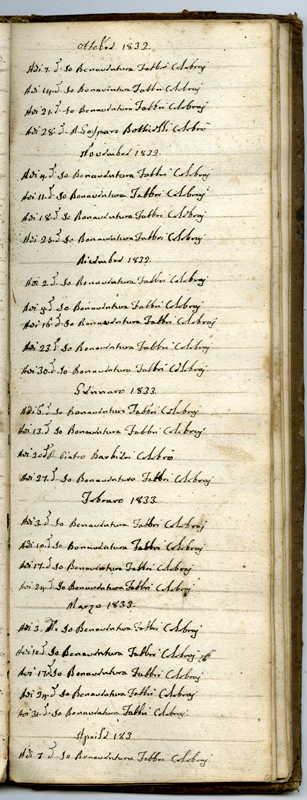 Ottobre 1832.
Adi 7. d.º Io Bonaventura Fabbri Celebraj
Adi 14. d.º Io Bonaventura Fabbri Celebraj
Adi 21. d.º Io Bonaventura Fabbri Celebraj
Adi 28. d.º Gasparo Celebrò
Novembre 1832.
Adi 4. d.º Io Bonaventura Fabbri Celebraj
Adi 11. d.º Io Bonaventura Fabbri Celebraj
Adi 18. d.º Io Bonaventura Fabbri Celebraj
Adi 25. d.º Io Bonaventura Fabbri Celebraj
Dicembre 1832.
Adi 2. d.º Io Bonaventura Fabbri Celebraj
Adi 9. d.º Io Bonaventura Fabbri Celebraj
Adi 16. d.º Io Bonaventura Fabbri Celebraj
Adi 23. d.º Io Bonaventura Fabbri Celebraj
Adi 30. d.º Io Bonaventura Fabbri Celebraj
Gennaro 1833.
Adi 6. d.º Io Bonaventura Fabbri Celebraj
Adi 13. d.º Io Bonaventura Fabbri Celebraj
Adi 20 d.º Pietro Barbieri Celebrò
Adi 27. d.º Io Bonaventura Fabbri Celebraj
Febraro 1833.
Adi 3. d.º Io Bonaventura Fabbri Celebraj
Adi 10. d.º Io Bonaventura Fabbri Celebraj
Adi 17. d.º Io Bonaventura Fabbri Celebraj
Adi 24. d.º Io Bonaventura Fabbri Celebraj
Marzo 1833.
Adi 3. Io Bonaventura Fabbri Celebraj
Adi 10. d.º Io Bonaventura Fabbri Celebraj
Adi 17. d.º Io Bonaventura Fabbri Celebraj
Adi 24. d.º Io Bonaventura Fabbri Celebraj
Adi 31. d.º Io Bonaventura Fabbri Celebraj
Aprile 183
Adi 7. d.º Io Bonaventura Fabbri Celebraj